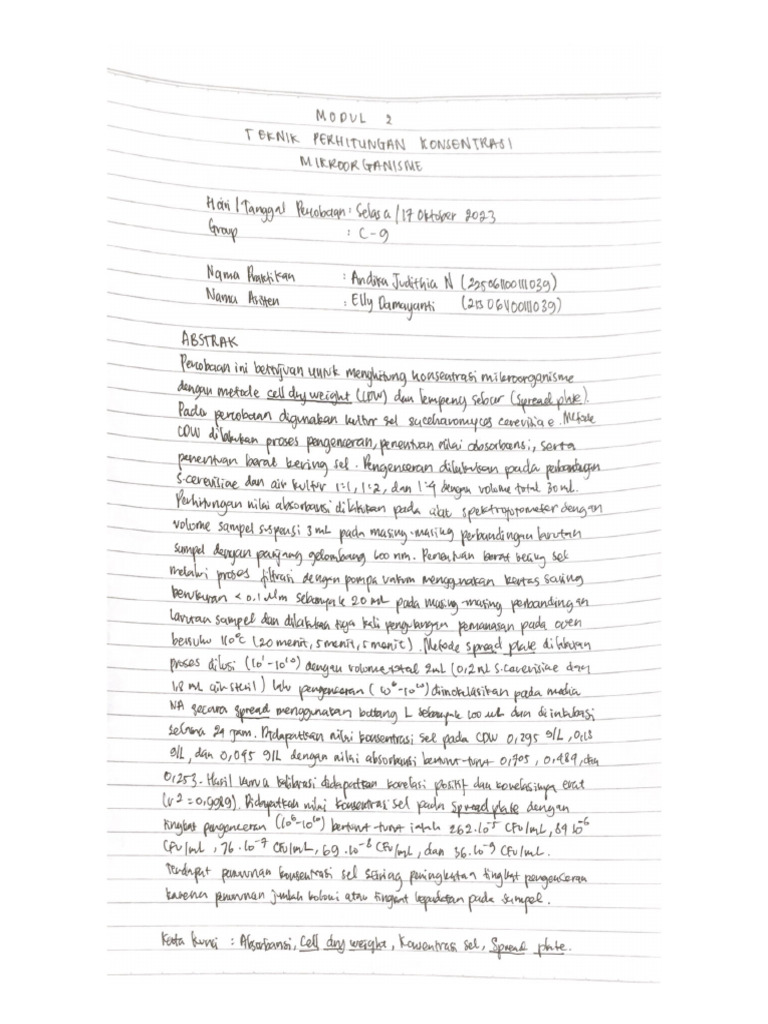 MODUL 2
TEKNIK PERHITUNGAN KONSENTRASI
MIKROORGANISME
Hari / Tanggal Percobaan : Selasa / 17 Oktober 2023
Group : C-9
Nama Praktikan : Andika Judithia N (225061100111039)
Nama Asisten : Elly Damayanti (215061100111039)
ABSTRAK
Percobaan ini bertujuan untuk menghitung konsentrasi mikroorganisme
dengan metode cell dry weight (CDW) dan lempeng sebar (Spread plate).
Pada percobaan digunakan kultur sel saccharomyces cerevisiae. Metode
CDW dilakukan proses pengenceran, penentuan nilai absorbansi, serta
penentuan berat kering sel. Pengenceran dilakukan pada perbandingan
S.cereviliae dan air kultur 1:1, 1:2, dan 1:4 dengan volume total 30 ml.
Perhitungan nilai absorbansi dilakukan pada alat spektrofotometer dengan
volume sampel suspensi 3 mL pada masing-masing perbandingan larutan
sampel dengan panjang gelombang 600 nm. Penentuan berat kering sel
melalui proses filtrasi dengan pompa vakum menggunakan kertas saring
berukuran < 0.1 µm sebanyak 20 mL pada masing-masing perbandingan
larutan sampel dan dilakukan tiga kali pengulangan pemanasan pada oven
bersuhu 110°C (20 menit, 5 menit, 5 menit). Metode spread plate dilakukan
proses dilusi (10¹-10¹⁰) dengan volume total 2mL (0,2 mL S.cerevisiae dan
1,8 mL air steril) lalu pengenceran (10⁶-10¹⁰) diinokulasikan pada media
NA secara spread menggunakan batang L sebanyak 100 µL dan diinkubasi
selama 24 jam. Didapatkan nilai konsentrasi sel pada CDW 0,295 g/L, 0,113
g/L, dan 0,045 g/L dengan nilai absorbansi berturut-turut 0,705, 0,489, dan
0,253. Hasil kurva kalibrasi didapatkan korelasi positif dan korelasinya erat
(r2 = 0,9089). Didapatkan nilai konsentrasi sel pada spread plate dengan
tingkat pengenceran (10⁶-10¹⁰) berturut-turut ialah 262.10⁻⁵ CFU/mL, 84 10⁻⁶
CFU/mL, 76.10⁻⁷ CFU/mL, 69.10⁻⁸ CFU/mL, dan 36.10⁻⁹ CFU/mL.
Terdapat penurunan konsentrasi sel seiring peningkatan tingkat pengenceran
karena penurunan jumlah koloni atau tingkat kepadatan pada sampel.
Kata kunci : Absorbansi, Cell dry weight, Konsentrasi sel, Spread plate.